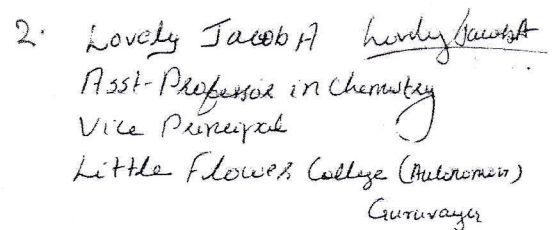 2. Lovely Jacob A Lovely Jacob A
Asst-Professor in Chemistry
Vice Principal
Little Flower College (Autonomous)
Guruvayur